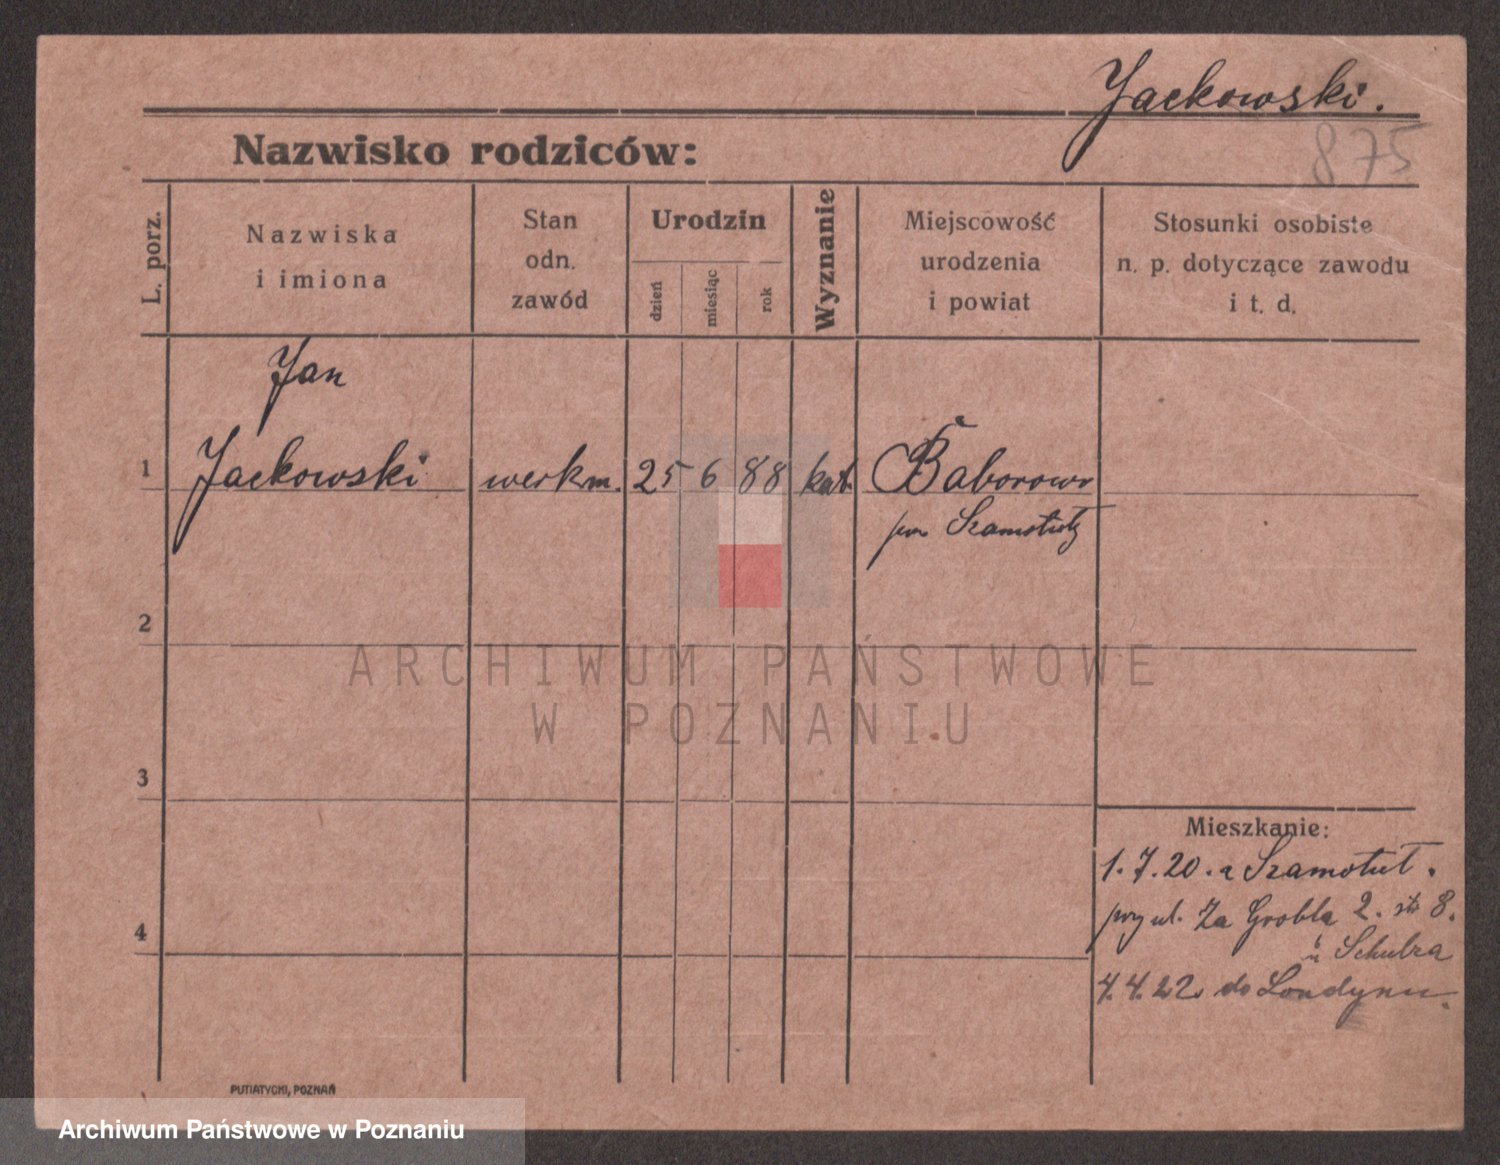 Jackowski.
875
Nazwisko rodziców:
L. porz.
Nazwiska
i imiona
Stan
odn.
zawód
Urodzin
dzień
miesiąc
rok
Wyznanie
Miejscowość
urodzenia
i powiat
Stosunki osobiste
n. p. dotyczące zawodu
i t. d.
Jan
1 Jackowski werkm. 25 6 88 kat. Baborowo
pow Szamotuły
2
ARCHIWUM PAŃSTWOWE
W POZNANIU
3
Mieszkanie:
1.7.20. z Szamotuł.
przy ul. Za Groblą 2. 8.
4
u Schulza
4.4.22. do Londynu.
PUTIATYCKI, POZNAŃ
Archiwum Państwowe w Poznaniu